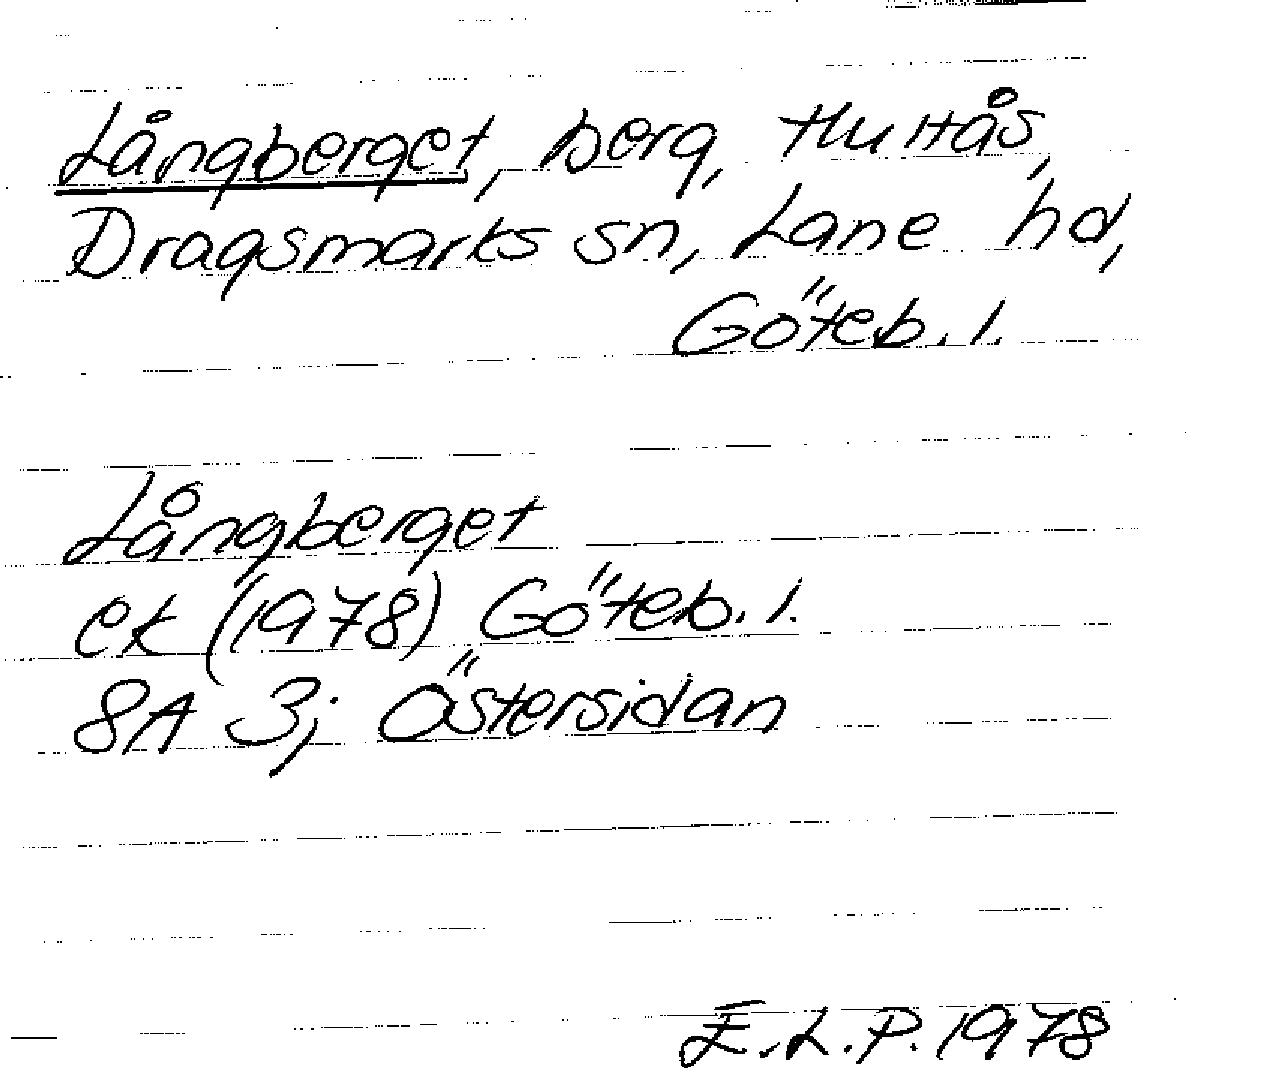 Långberget, berg, Hultås,
Dragsmarks sn, Lane hd,
Göteb. l.
Långberget
ek (1978) Göteb. l.
8A 3; Östersidan
E.L.P. 1978